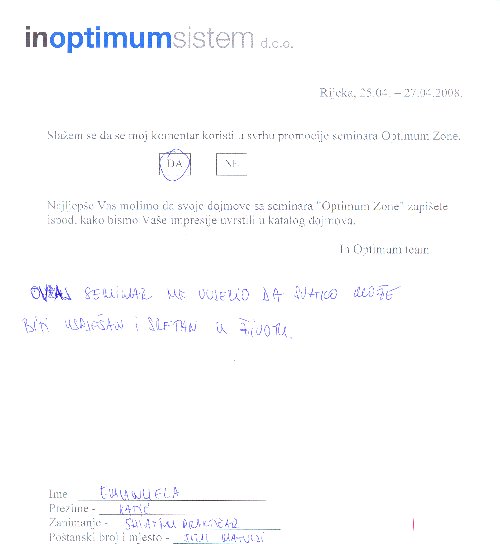 inoptimumsistem d.o.o.
Rijeka, 25.04. – 27.04.2008.
Slažem se da se moj komentar koristi u svrhu promocije seminara Optimum Zone.
DA NE
Najljepše Vas molimo da svoje dojmove sa seminara "Optimum Zone" zapišete
ispod, kako bismo Vaše impresije uvrstili u katalog dojmova.
In Optimum team
OVAJ SEMINAR ME UVJERIO DA SVATKO MOŽE
BITI USPJEŠAN I SRETAN U ŽIVOTU.
Ime EMANUELA
Prezime -
Zanimanje -
Poštanski broj i mjesto - MATULJI